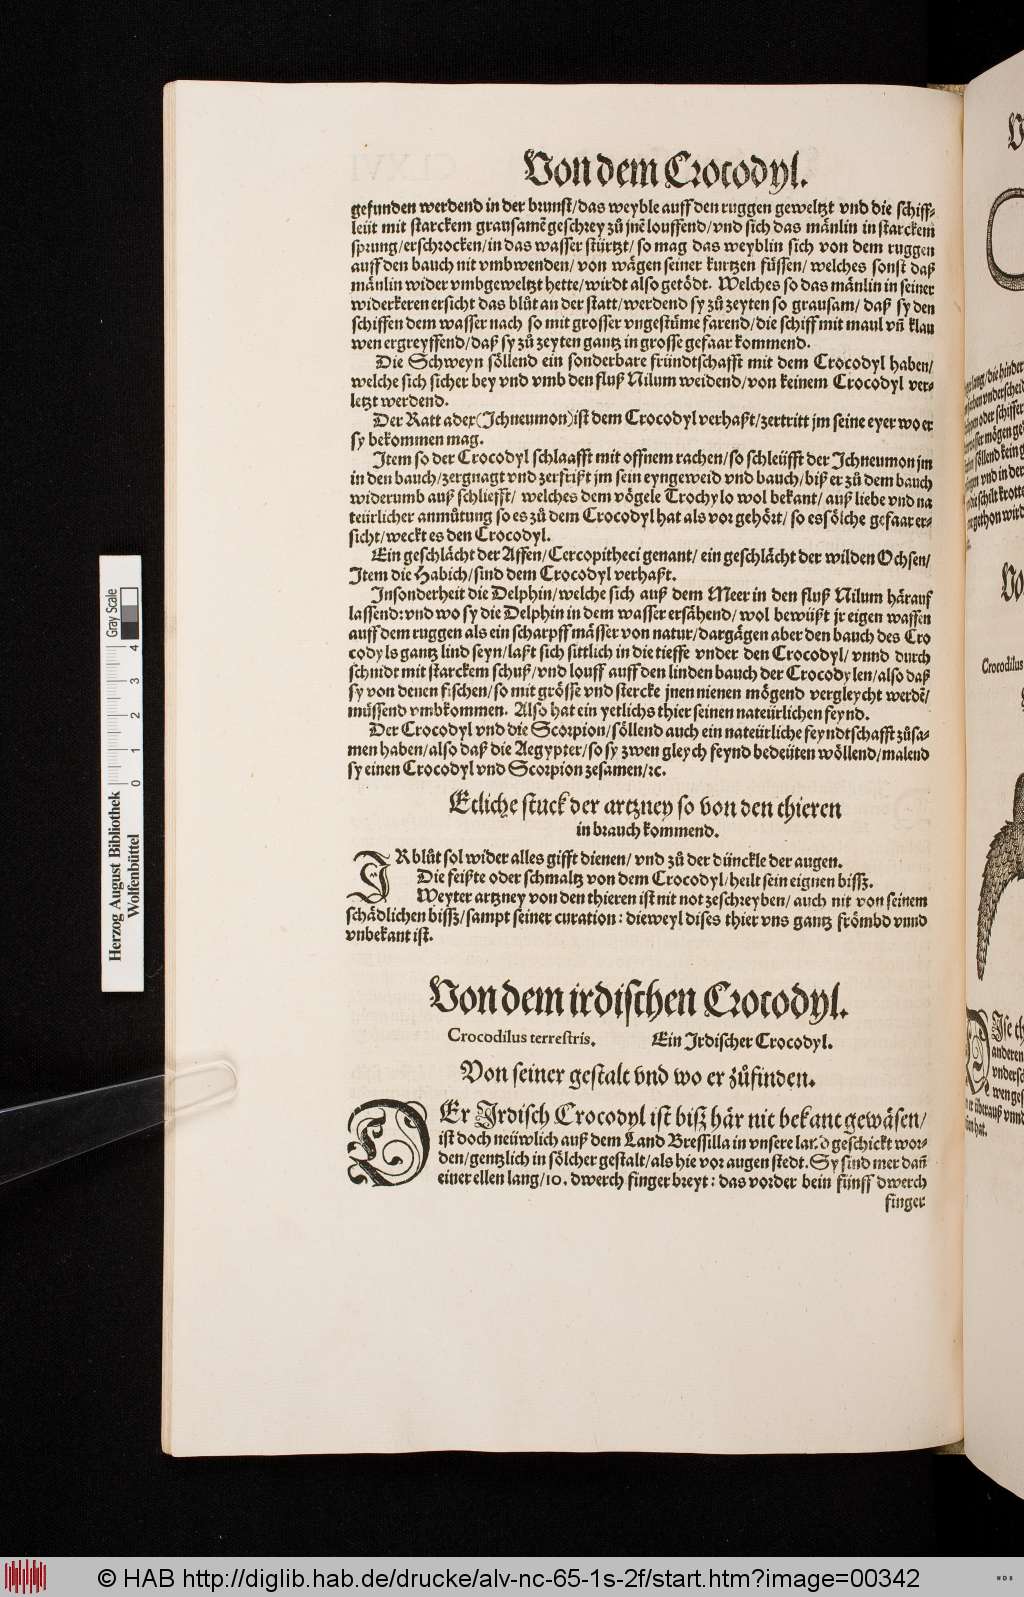 Von dem Crocodyl.
gefunden werdend in der brunst/das weyble auff den ruggen geweltzt vnd die schiff-
leüt mit starckem grausamẽ geschrey zů jnẽ louffend/vnd sich das mänlin in starckem
sprung/erschrocken/in das wasser stürtzt/ so mag das weyblin sich von dem ruggen
auff den bauch nit vmbwenden/ von wägen seiner kurtzen füssen/ welches sonst daß
mänlin wider vmbgeweltzt hette/wirdt also getödt. Welches so das mänlin in seiner
widerkeren ersicht das blůt an der statt/werdend sy zů zeyten so grausam/ daß sy den
schiffen dem wasser nach so mit grosser vngestüme farend/die schiff mit maul vñ klau
wen ergreyffend/daß sy zů zeyten gantz in grosse gefaar kommend.
Die Schweyn söllend ein sonderbare fründtschafft mit dem Crocodyl haben/
welche sich sicher bey vnd vmb den fluß Nilum weidend/von keinem Crocodyl ver-
letzt werdend.
Der Ratt ader(Ichneumon)ist dem Crocodyl verhaßt/zertritt jm seine eyer wo er
sy bekommen mag.
Item so der Crocodyl schlaafft mit offnem rachen/so schleüfft der Ichneumon jm
in den bauch/zergnagt vnd zerfrißt jm sein eyngeweid vnd bauch/biß er zů dem bauch
widerumb auß schliefft/ welches dem vögele Trochylo wol bekant/ auß liebe vnd na
teürlicher anmůtung so es zů dem Crocodyl hat als vor gehört/ so es sölche gefaar er-
sicht/weckt es den Crocodyl.
Ein geschlächt der Affen/Cercopitheci genant/ ein geschlächt der wilden Ochsen/
Item die Habich/sind dem Crocodyl verhaßt.
Insonderheit die Delphin/welche sich auß dem Meer in den fluß Nilum härauf
lassend:vnd wo sy die Delphin in dem wasser ersähend/ wol bewüßt jr eigen waffen
auff dem ruggen als ein scharpff mässer von natur/dargägen aber den bauch des Cro
codyls gantz lind seyn/laßt sich sittlich in die tieffe vnder den Crocodyl/ vnnd durch
schnidt mit starckem schuß/vnd louff auff den linden bauch der Crocodylen/also daß
sy von denen fischen/so mit grösse vnd stercke jnen nienen mögend vergleycht werdẽ/
müssend vmbkommen. Also hat ein yetlichs thier seinen nateürlichen feynd.
Der Crocodyl vnd die Scorpion/söllend auch ein nateürliche feyndtschafft zůsa-
men haben/also daß die Aegypter/so sy zwen gleych feynd bedeüten wöllend/malend
sy einen Crocodyl vnd Scorpion zesamen/ꝛc.
Etliche stuck der artzney so von den thieren
in brauch kommend.
IR blůt sol wider alles gifft dienen/ vnd zů der dünckle der augen.
Die feißte oder schmaltz von dem Crocodyl/heilt sein eignen bissz.
Weyter artzney von den thieren ist nit not zeschreyben/ auch nit von seinem
schädlichen bissz/sampt seiner curation : dieweyl dises thier vns gantz frömbd vnnd
vnbekant ist.
Von dem irdischen Crocodyl.
Crocodilus terrestris. Ein Irdischer Crocodyl.
Von seiner gestalt vnd wo er zůfinden.
DEr Irdisch Crocodyl ist biß här nit bekant gewäsen/
ist doch neüwlich auß dem Land Bressilla in vnsere land geschickt wor-
den/gentzlich in sölcher gestalt/als hie vor augen stedt. Sy sind mer dañ
einer ellen lang/10. dwerch finger breyt : das vorder bein fünff dwerch
finger
Crocodilus
Gray Scale
0 1 2 3 4
Herzog August Bibliothek
Wolfenbüttel
© HAB http://diglib.hab.de/drucke/alv-nc-65-1s-2f/start.htm?image=00342